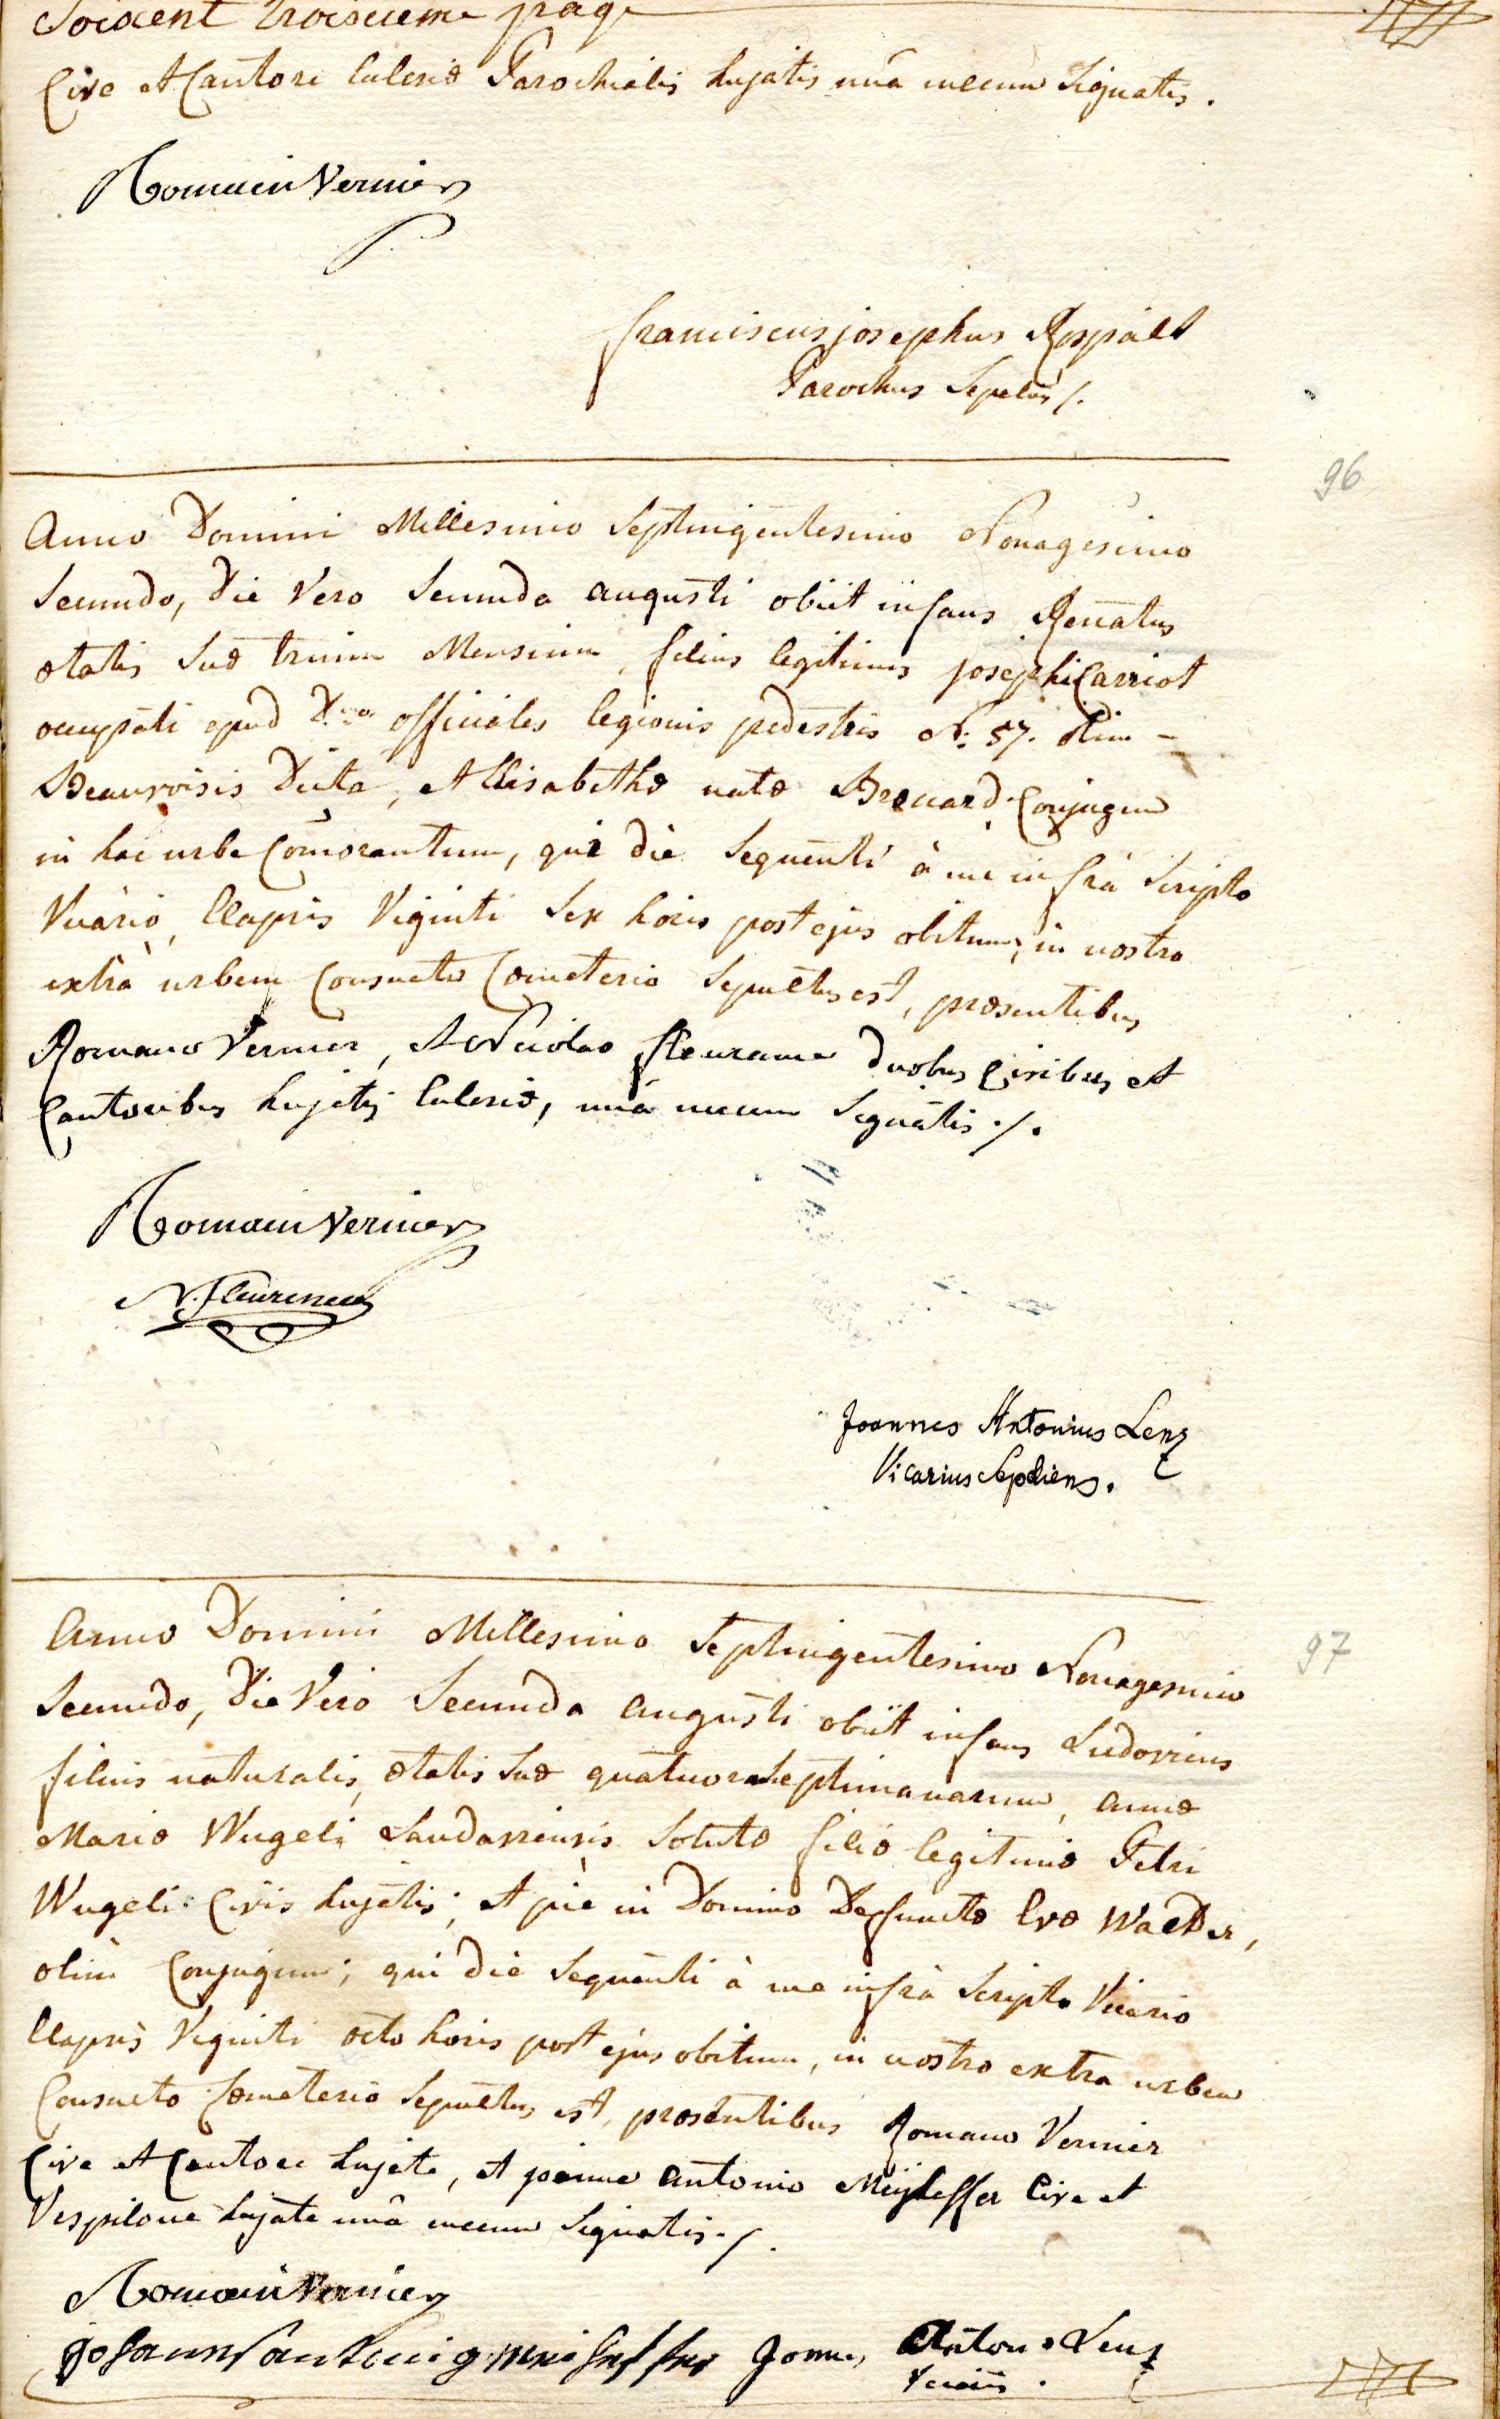 Soixent troisieme page
Cive et Cantore Ecclesiæ Parochialis hujatis unà mecum signatis.
Romain Vernier
franciscus josephus Rospält
Parochus Sepel: /.
96
Anno Domini Millesimo Septingentesimo Nonagesimo
Secundo, die vero Secunda augusti obiit infans Renatus
ætatis suæ trium Mensium, filius legitimus josephi Carriot
occupati apud D.nos officiales legionis pedestris N: 57. olim -
Beauvoisis dicta, et Elisabethæ natæ Brouard Conjugum
in hac urbe Comorantium, qui die sequenti à me infrà scripto
Vicario, Elapsis Viginti sex horis post ejus obitum, in nostro
extrà urbem Consueto Cœmeterio sepultus est, præsentibus
Romano Vernier, et Nicolao fleurance duobus Civibus et
Cantoribus hujatis Ecclesiæ, unà mecum signatis ./.
Romain Vernier
N. fleurence
Joannes Antonius Lenz
Vicarius Sepeliens.
97
Anno Domini Millesimo Septingentesimo Nonagesimo
Secundo, die Vero Secunda augusti obiit infans Ludovicus
filius naturalis, ætatis suæ quatuor Septimanarum, annæ
Mariæ Wugeli Landaviensis solutæ filiæ legitimæ Petri
Wugeli Civis hujatis; et piè in Domino Defunctæ Evæ Walter,
olim Conjugum; qui die sequenti à me infrà scripto Vicario
Elapsis Viginti octo horis post ejus obitum, in nostro extra urbem
Consueto Cœmeterio sepultus est, præsentibus Romano Vernier
Cive et Cantore hujate, et joanne antonio Meijheffer Cive et
Vespilone hujate unà mecum signatis ./.
Romain Vernier
Johann antoni Meiheffer Joannes Anton: Lenz
Vicarius.